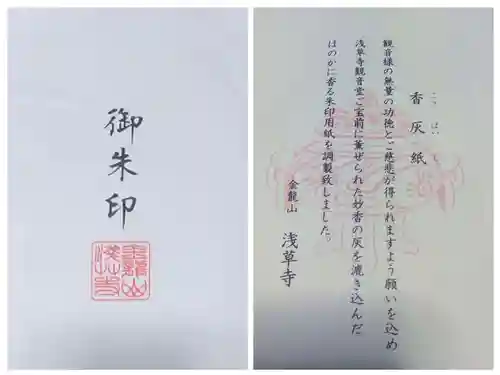 御朱印
金龍山
浅草寺
香灰紙
こう ばい し
観音様の無量の功徳とご慈悲が得られますよう願いを込め
浅草寺観音堂ご宝前に薫ぜられた妙香の灰を漉き込んだ
ほのかに香る朱印用紙を調製致しました。
金龍山
浅草寺